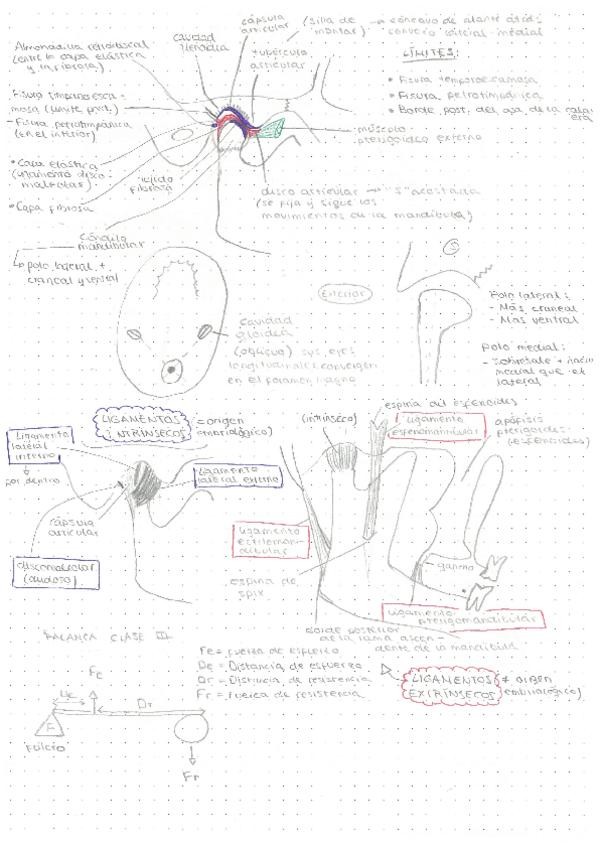 cápsula
articular
(silla de
montar)
cóncavo de delante atrás;
convexo lateral-medial
Almohadilla retrodiscal
(entre la capa elástica
y la fibrosa)
cavidad
glenoidea
tubérculo
articular
LÍMITES:
• Fisura timpanoescamosa
• Fisura petrotimpánica
• Borde post. del
(límite post.)
- Fisura petrotimpánica
(en el interior)
músculo
pterigoideo externo
• Capa elástica
(ligamento disco-
maleolar)
tejido
fibroso
• Capa fibrosa
disco articular → "S" acostada
(se fija y sigue los
movimientos de la mandíbula)
Cóndilo
mandibular
polo lateral +
craneal y ventral
Exterior
Cavidad
gloidea
(oblicua) sus ejes
longitudinales convergen
en el foramen magno
Polo lateral:
- Más craneal
- Más ventral
Polo medial:
- sobresale + hacia
medial que el
lateral
LIGAMENTOS
INTRÍNSECOS
(= origen
embriológico)
Ligamento
lateral
interno
por dentro
Ligamento
lateral externo
cápsula
articular
discomaleolar
(dudoso)
(intrínseco)
espina del esfenoides
Ligamento
esfenomandibular
apófisis
pterigoides
(esfenoides)
Ligamento
estilomandibular
espina de
Spix
gancho
Ligamento
pterigomandibular
borde posterior
de la rama ascen-
dente de la mandíbula
LIGAMENTOS
EXTRÍNSECOS
(≠ origen
embriológico)
PALANCA CLASE III
Fe = fuerza de esfuerzo
De = Distancia de esfuerzo
Dr = Distancia de resistencia
Fr = Fuerza de resistencia
Fe
De
Dr
F
Fulcro
Fr